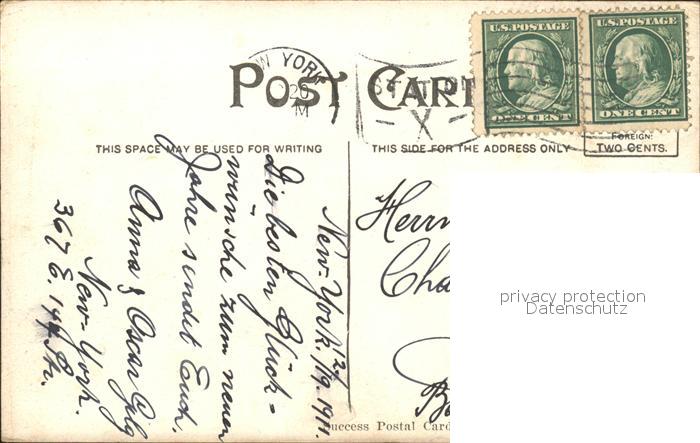 U.S.POSTAGE
ONE CENT
U.S.POSTAGE
ONE CENT
YORK
POST CAR
FOREIGN:
TWO CENTS.
THIS SPACE MAY BE USED FOR WRITING
THIS SIDE FOR THE ADDRESS ONLY
New-York. 12/19. 1911.
Die besten Glück-
wünsche zum neuen
Jahre sendet Euch.
Anna & Oscar
New-York.
367 E. 144 Str.
Herrn
Cha
privacy protection
Datenschutz
uccess Postal Card